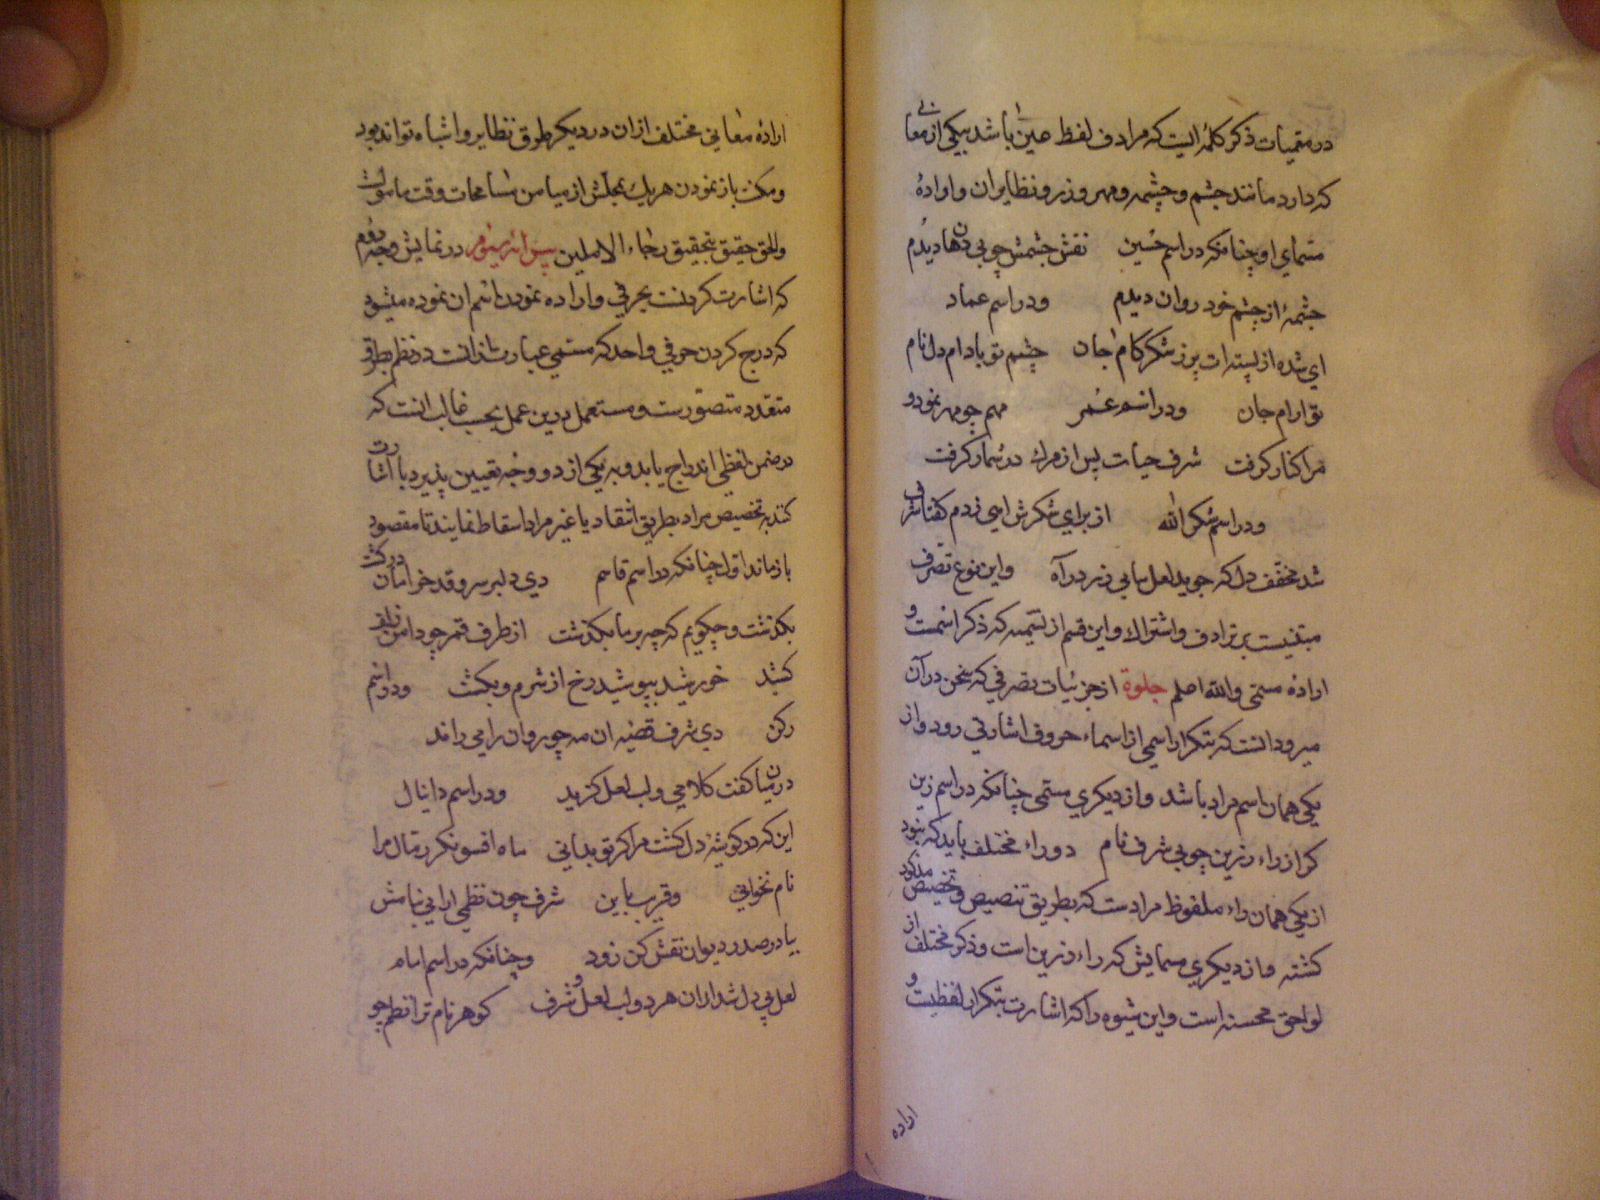 در متمیات ذکر کلمهٔ ایست که مرادف لفظ عین باشد بیکی از معانی
که دارد مانند چشم و چشمه و مهر و زر و نظایر ان و ارادهٔ
مسمای او چنانکه در اسم حسین نقش چشمش چو بی دهان دیدم
چشمهٔ از چشم خود روان دیدم و در اسم عماد
ای شده از پسته ات پر ز شکر کام جان چشم تو بادام دل نام
تو ارام جان و در اسم عمر مهم چو مهر نمود و
مرا کنار کرفت شرف حیات پس از مرک در شمار کرفت
و در اسم شکر الله از برای شکرش امی زدم کفتا شرف
شد مخفف دل که جوید لعل سایی زر در آه و این نوع تصرف
مبتنیست بر ترادف و اشتراک و این قسم از تسمیه که ذکر اسمست و
ارادهٔ مسمی والله اعلم جلوة از جزئیات تصرفی که سخن در آن
میرود انست که بتکرار اسمی از اسماء حروف اشارتی رود و از
یکی همان اسم مراد باشد و از دیکری مسمی چنانکه در اسم زین
کر از راء زرین چو بی شرف نام دو راء مختلف باید که بنود
از یکی همان راء ملفوظ مرادست که بطریق تنصیص و تخصیص مذکور
کشته و از دیکری مسمایش که راء زرین است و ذکر مختلف از
لواحق محسنه است و این شیوه را که اشارت بتکرار لفظیست و
اراده
ارادهٔ معانی مختلف ازان در دیکر طرق نظایر و اشباه تواند بود
و مکث باز نمودن هر یک بمحلش از میامن مسامحات وقت مامولست
والحق حقیق بتحقیق رجاء الاملین پس در نمایش وجه دوم
که اشارت کردنست بحرفی و اراده نمودن اسم ان نموده میشود
که درج کردن حرفی واحد که مسمی عبارت ازانست در نظم بطرق
متعدد متصورست و مستعمل درین عمل بحسب غالب انست که
در ضمن لفظی اندراج یابد و به یکی از دو وجه تعیین پذیرد یا اشارت
کند به تخصیص مراد بطریق انتقاد یا غیر مراد اسقاط نمایند تا مقصود
باز ماند اول چنانکه در اسم قاسم دی دلبر سرو قد خرامان در کشت
بکذشت و چکویم که چه بر ما بکذشت از طرف قمر چو دامن زلف
کشد خورشید بپوشید رخ از شرم و بکشت و در اسم
رکن دی شرف قضیه ان مه چو روان را می راند
در میان کفت کلامی و لب لعل کزید و در اسم دانیال
این که در کوشهٔ دل کشت مرا کر تو بدانی ماه افسونکر رمال مرا
نام نخوانی و قریب باین شرف چون نظم ارایی بنامش
بیا در صدر دیوان نقش کن زود و چنانکه در اسم امام
لعل پی دل شد ازان هر دو لب لعل و شرف کوهر نام ترا نظم چو